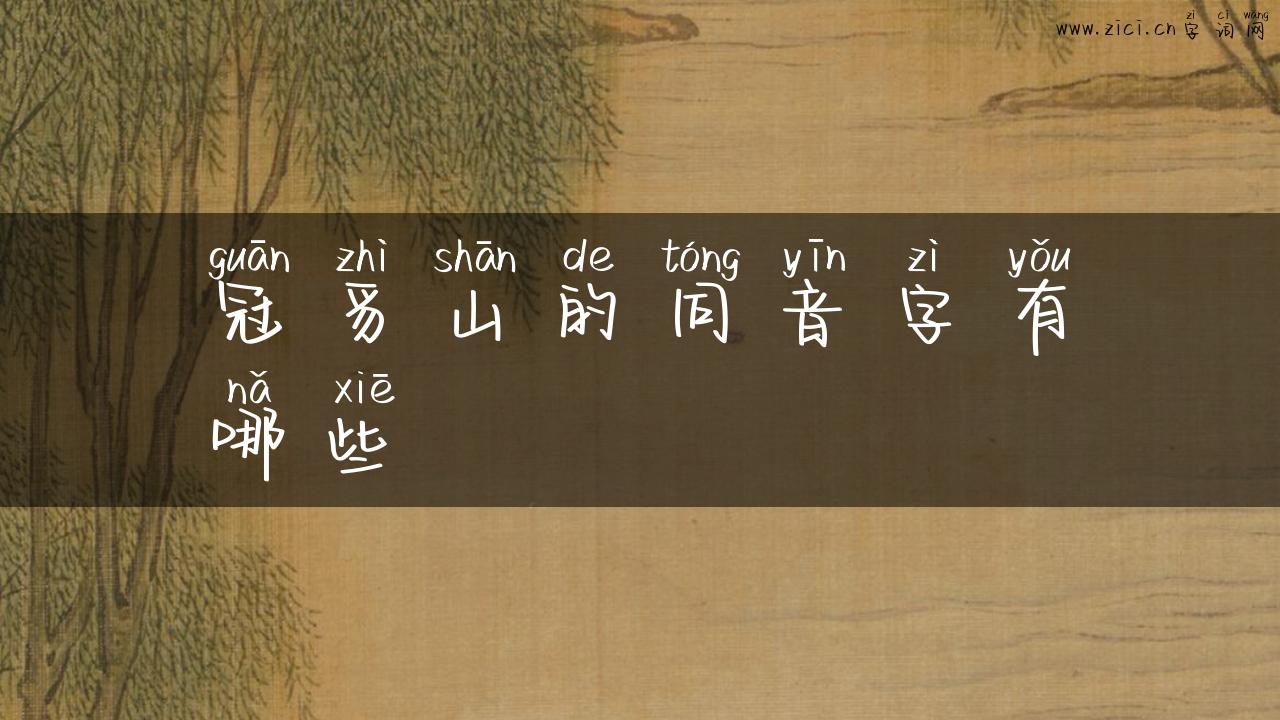 zì cí wǎng
www.zici.cn 字词网
guān zhì shān de tóng yīn zì yǒu
冠豸山的同音字有
nǎ xiē
哪些